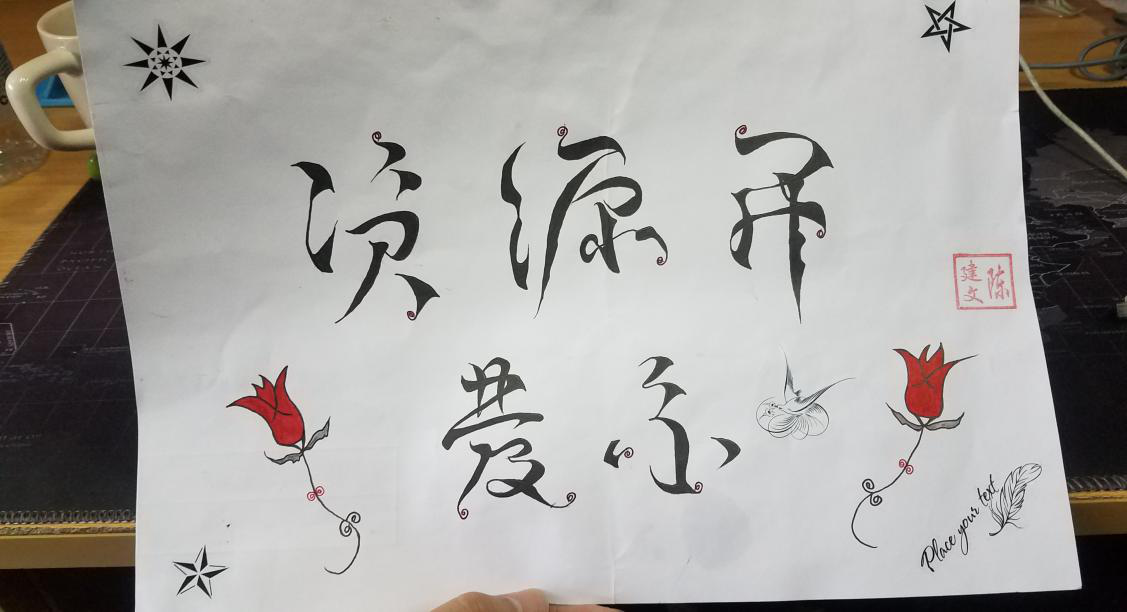 资源开
發
陈建文
Place your text